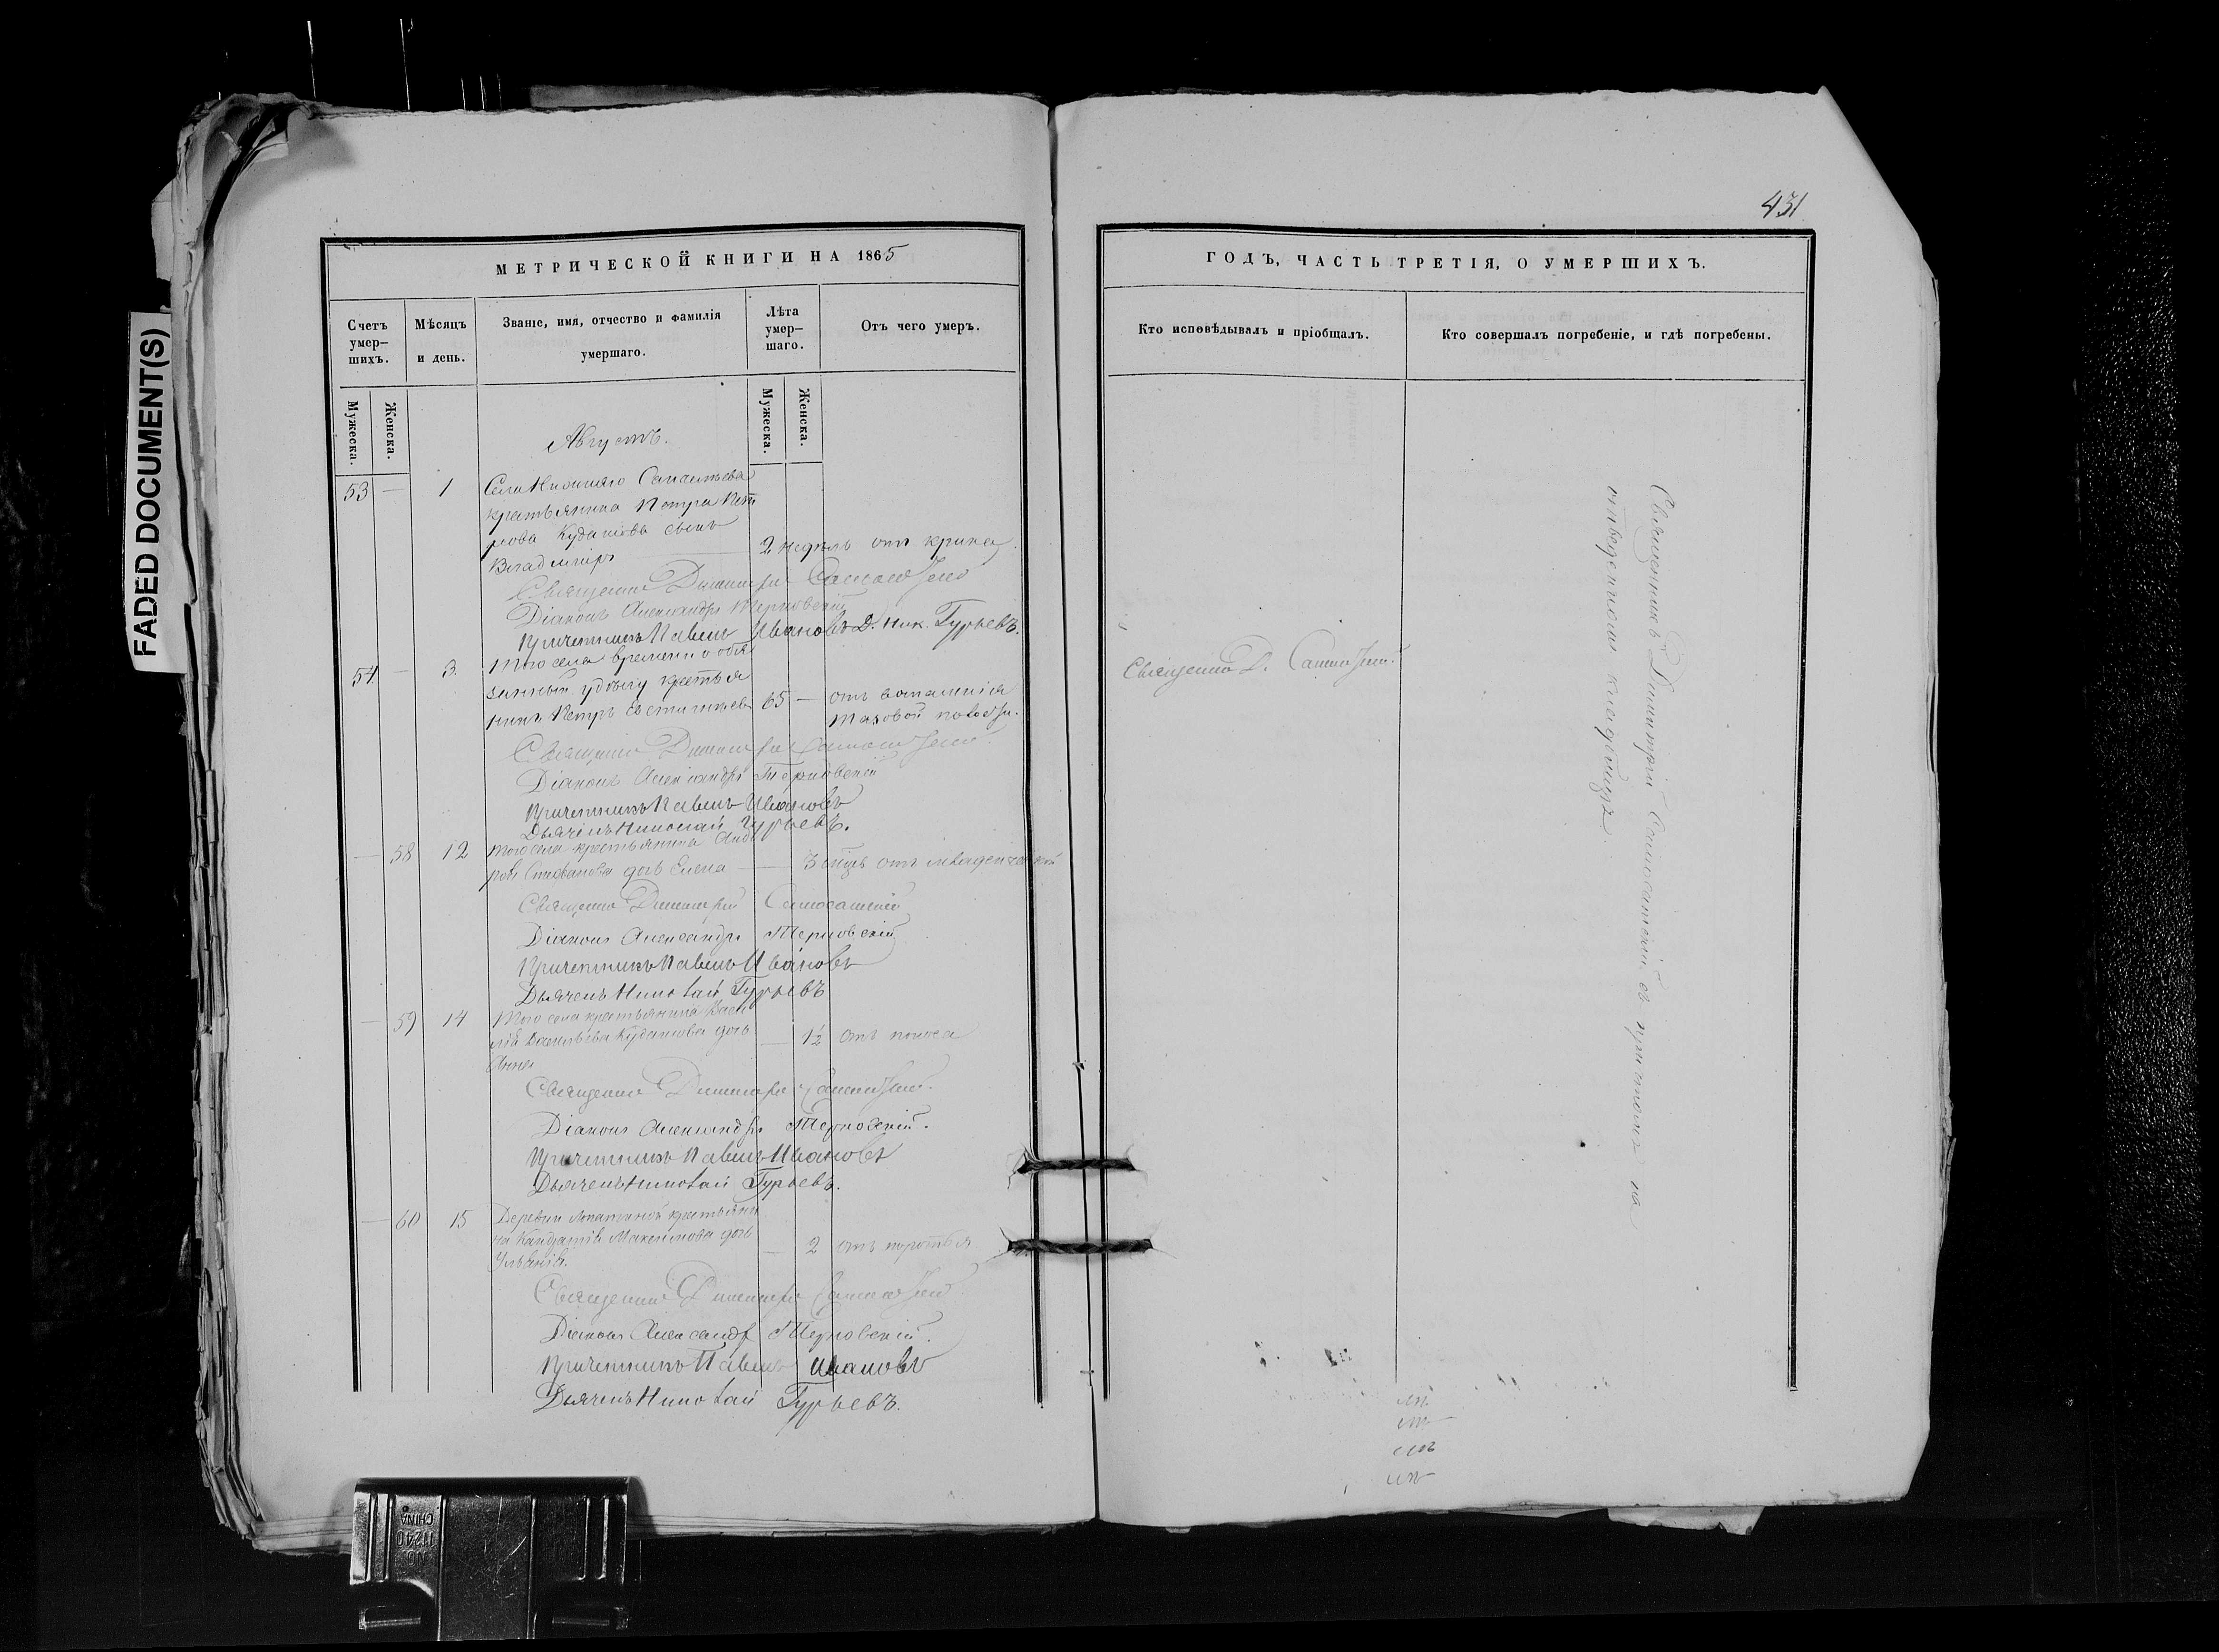 FADED DOCUMENT(S)
431
МЕТРИЧЕСКОЙ КНИГИ НА 1865
ГОДЪ, ЧАСТЬ ТРЕТІЯ, О УМЕРШИХЪ.
Счетъ умер-
шихъ.
Мѣсяцъ
и день.
Званіе, имя, отчество и фамилія
умершаго.
Лѣта
умер-
шаго.
Отъ чего умеръ.
Кто исповѣдывалъ и пріобщалъ.
Кто совершалъ погребеніе, и гдѣ погребены.
Мужеска.
Женска.
Мужеска.
Женска.
Августъ.
53 — 1 Села
крестьянина Петра Пет
рова Кудашова сынъ
Владиміръ 2 недѣль отъ крика
Священникъ Димитрій
Діаконъ Александръ Терновскій
Причетникъ Павелъ Ивановъ Д. Ник. Гурьевъ.
54 — 3. Того села временно обя
занный крестья
нинъ Петръ 65 — отъ
Священникъ Димитрій
Діаконъ Александръ Терновскій
Причетникъ Павелъ Ивановъ
Дьячекъ Николай Гурьевъ.
— 58 12 Того села крестьянина Анд
рея дочь Елена — 3 отъ младенческой
Священникъ Димитрій Самосатскій
Діаконъ Александръ Терновскій
Причетникъ Павелъ Ивановъ
Дьячекъ Николай Гурьевъ
— 59 14 Того села крестьянина Васи
лія Васильева Кудашова дочь
Анна — 1½ отъ поноса
Священникъ Димитрій
Діаконъ Александръ Терновскій.
Причетникъ Павелъ Ивановъ
Дьячекъ Николай Гурьевъ.
— 60 15 Деревни крестьяни
на Максимова дочь
— 2 отъ
Священникъ Димитрій
Діаконъ Александръ Терновскій.
Причетникъ Павелъ Ивановъ
Дьячекъ Николай Гурьевъ.
Священникъ Д.
Священникъ Димитрій Самосатскій съ причтомъ на
отведенномъ кладбищѣ.
NO
11240
CHINA